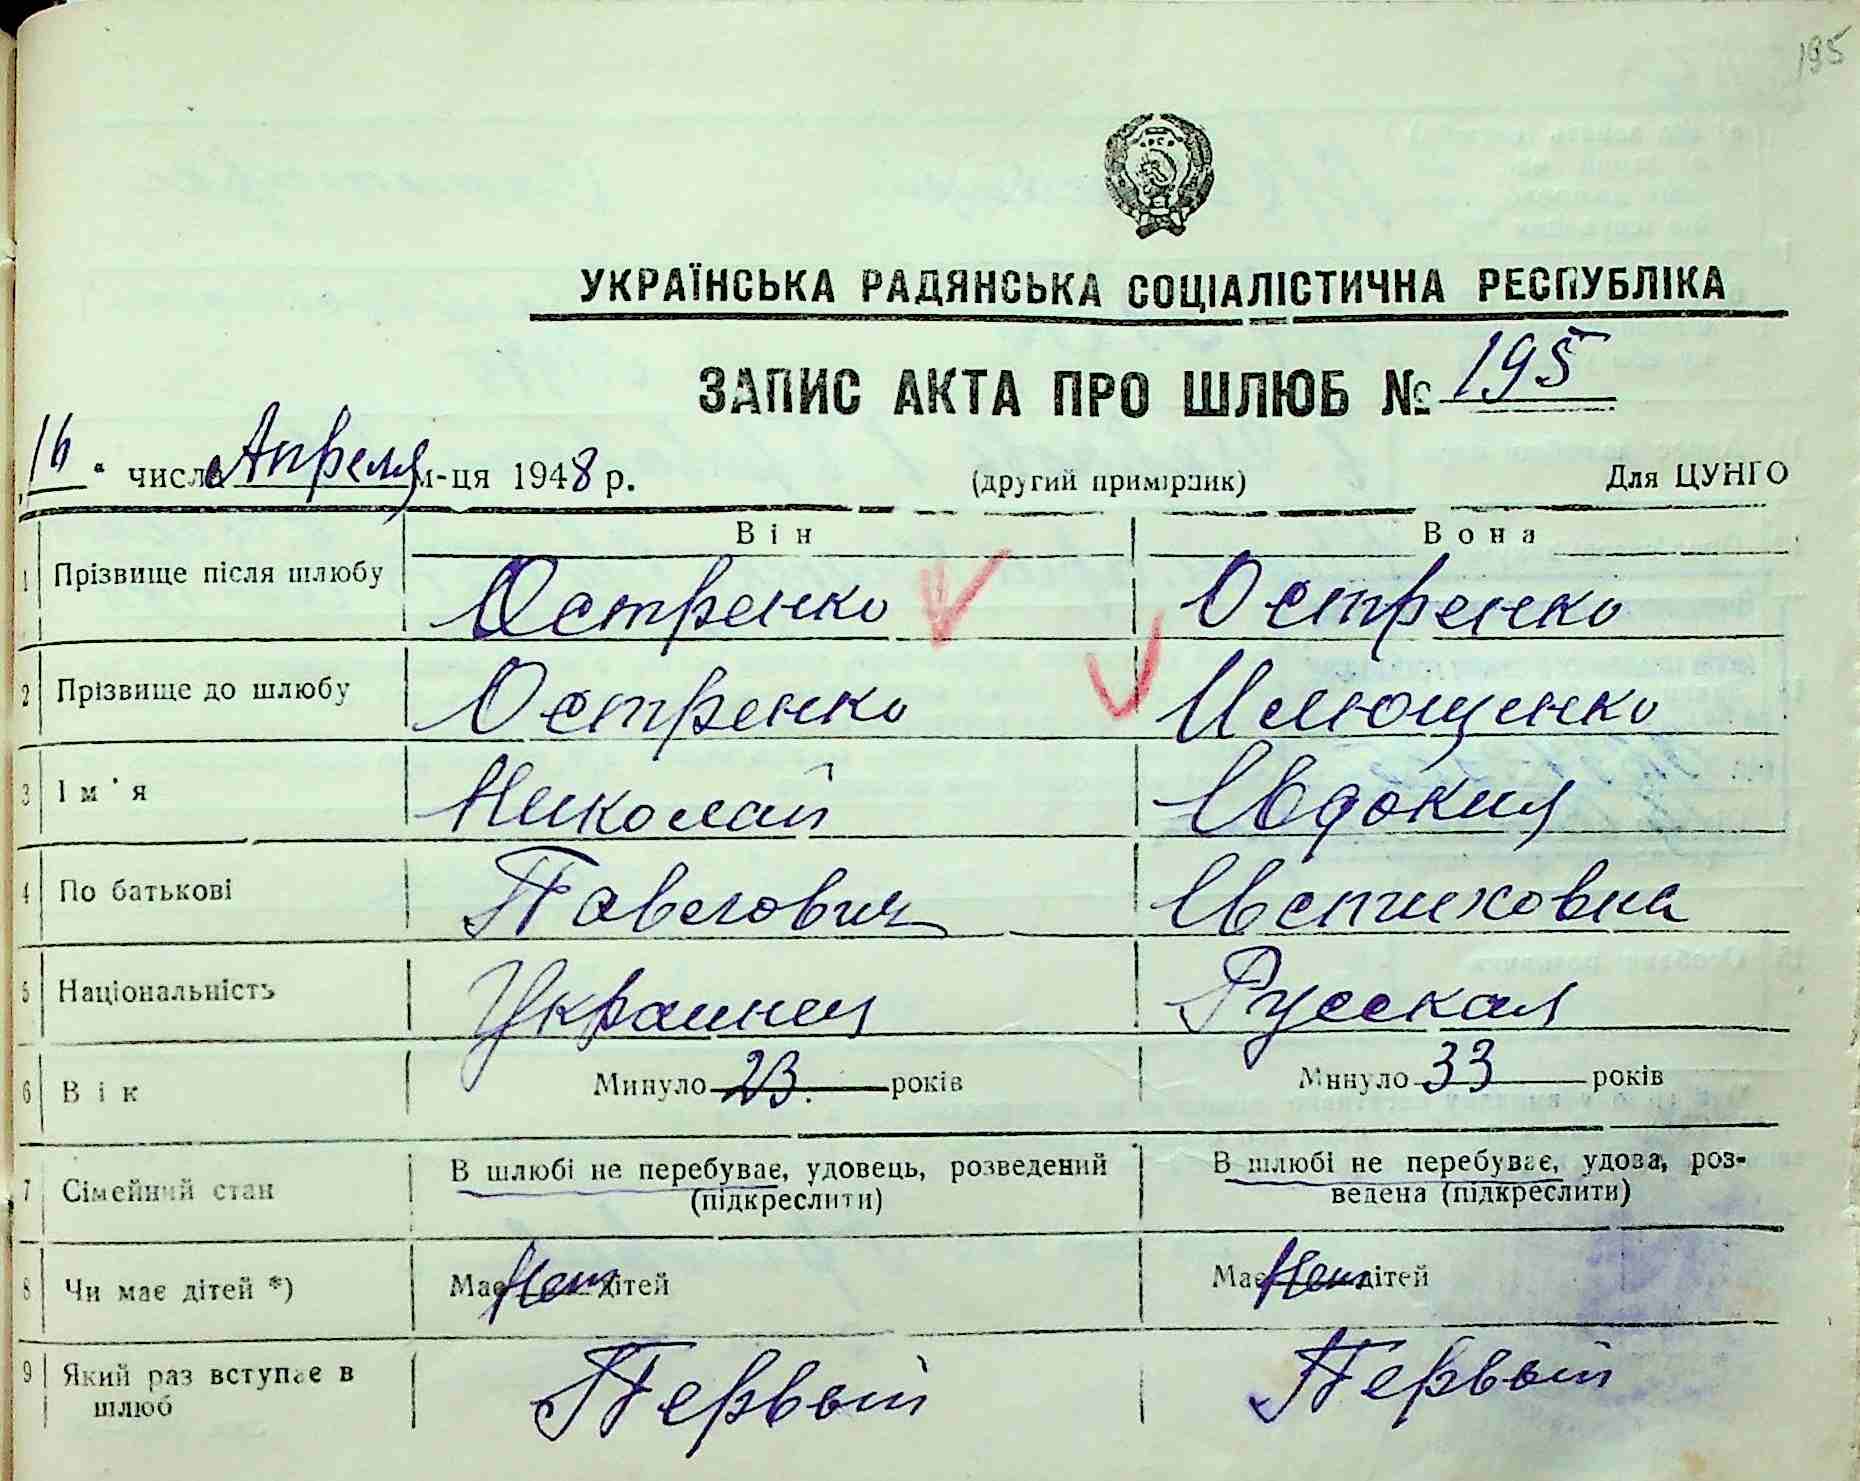 195
УКРАЇНСЬКА РАДЯНСЬКА СОЦІАЛІСТИЧНА РЕСПУБЛІКА
ЗАПИС АКТА ПРО ШЛЮБ № 195
„16“ числа Апреля м-ця 1948 р. (другий примірник) Для ЦУНГО
Він Вона
1 Прізвище після шлюбу Остренко Остренко
2 Прізвище до шлюбу Остренко Илющенко
3 Ім'я Николай Евдокия
4 По батькові Павлович Евстиховна
5 Національність Украинец Русская
6 Вік Минуло 23. років Минуло 33 років
7 Сімейний стан В шлюбі не перебуває, удовець, розведений В шлюбі не перебуває, удова, роз-
(підкреслити) ведена (підкреслити)
8 Чи має дітей *) Має Нет дітей Має Нет дітей
9 Який раз вступає в Первый Первый
шлюб